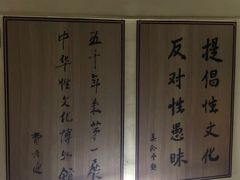 提倡性文化
反对性愚昧
五千年来第一展
中华性文化博物馆